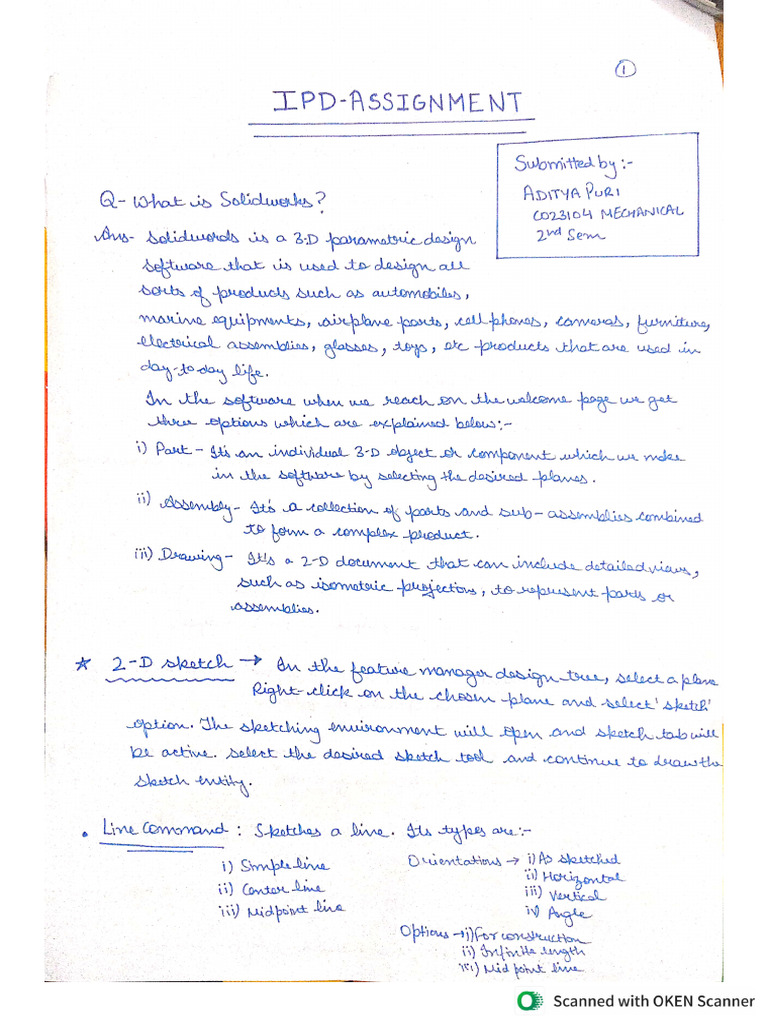 1
IPD-ASSIGNMENT
Submitted by:-
ADITYA PURI
CO23104 MECHANICAL
2nd Sem
Q- What is Solidworks?
Ans- Solidwords is a 3-D parametric design
software that is used to design all
sorts of products such as automobiles,
marine equipments, airplane parts, cell phones, cameras, furniture,
electrical assemblies, glasses, toys, etc products that are used in
day-to-day life.
In the software when we reach on the welcome page we get
three options which are explained below:-
i) Part - It's an individual 3-D object or component which we make
in the software by selecting the desired planes.
ii) Assembly- It's a collection of parts and sub-assemblies combined
to form a complex product.
iii) Drawing- It's a 2-D document that can include detailed views,
such as isometric projections, to represent parts or
assemblies.
★ 2-D sketch → In the feature manager design tree, select a plane
Right-click on the chosen plane and select 'sketch'
option. The sketching environment will open and sketch tab will
be active. Select the desired sketch tool and continue to draw the
sketch entity.
• Line Command : Sketches a line. Its types are:-
i) Simple line
ii) Center line
iii) Midpoint line
Orientations → i) As sketched
ii) Horizontal
iii) Vertical
iv) Angle
Options → i) For construction
ii) Infinite length
iii) Mid point line
Scanned with OKEN Scanner